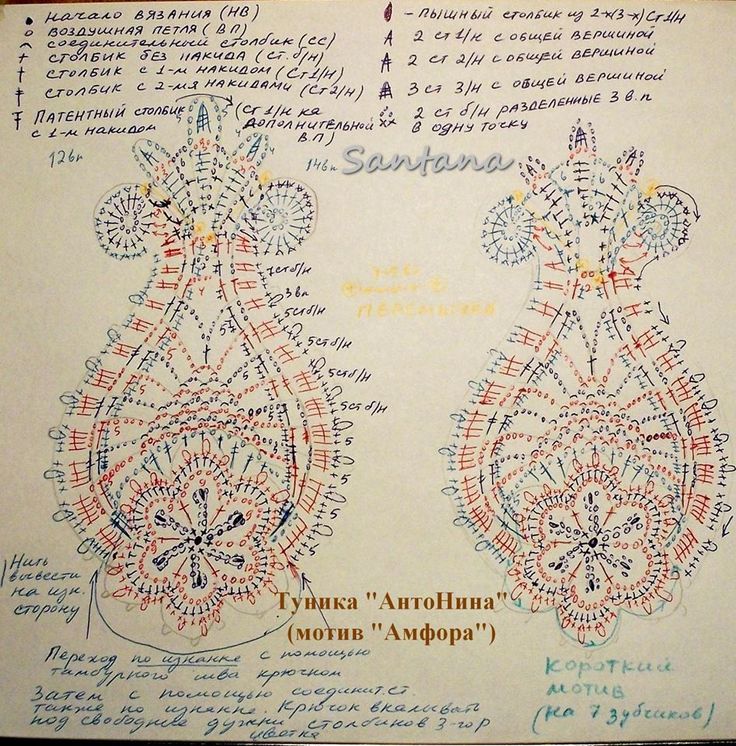 • начало вязания (НВ)
о воздушная петля (ВП)
⌢ соединительный столбик (СС)
+ столбик без накида (ст.б/н)
† столбик с 1-м накидом (Ст1/н)
‡ столбик с 2-мя накидами (Ст2/н)
Патентный столбик (ст 1/н на
с 1-м накидом дополнительной
В.П)
- пышный столбик из 2-х(3-х)Ст1/н
2 ст 1/н с общей вершиной
2 ст 2/н с общей вершиной
3 ст 3/н с общей вершиной
2 ст б/н разделенные 3 в.п
в одну точку
12вп
14вп
Santana
7стб/н
3вп
5стб/н
5стб/н
5стб/н
5стб/н
Нить
вывести
на изн.
сторону
Туника "АнтоНина"
(мотив "Амфора")
Переход по изнанке с помощью
тамбурного шва крючком
Затем с помощью соединит.ст.
также по изнанке. Крючок вкалывать
под свободные дужки столбиков 3-го р
цветка
Короткий
мотив
(на 7 зубчиков)